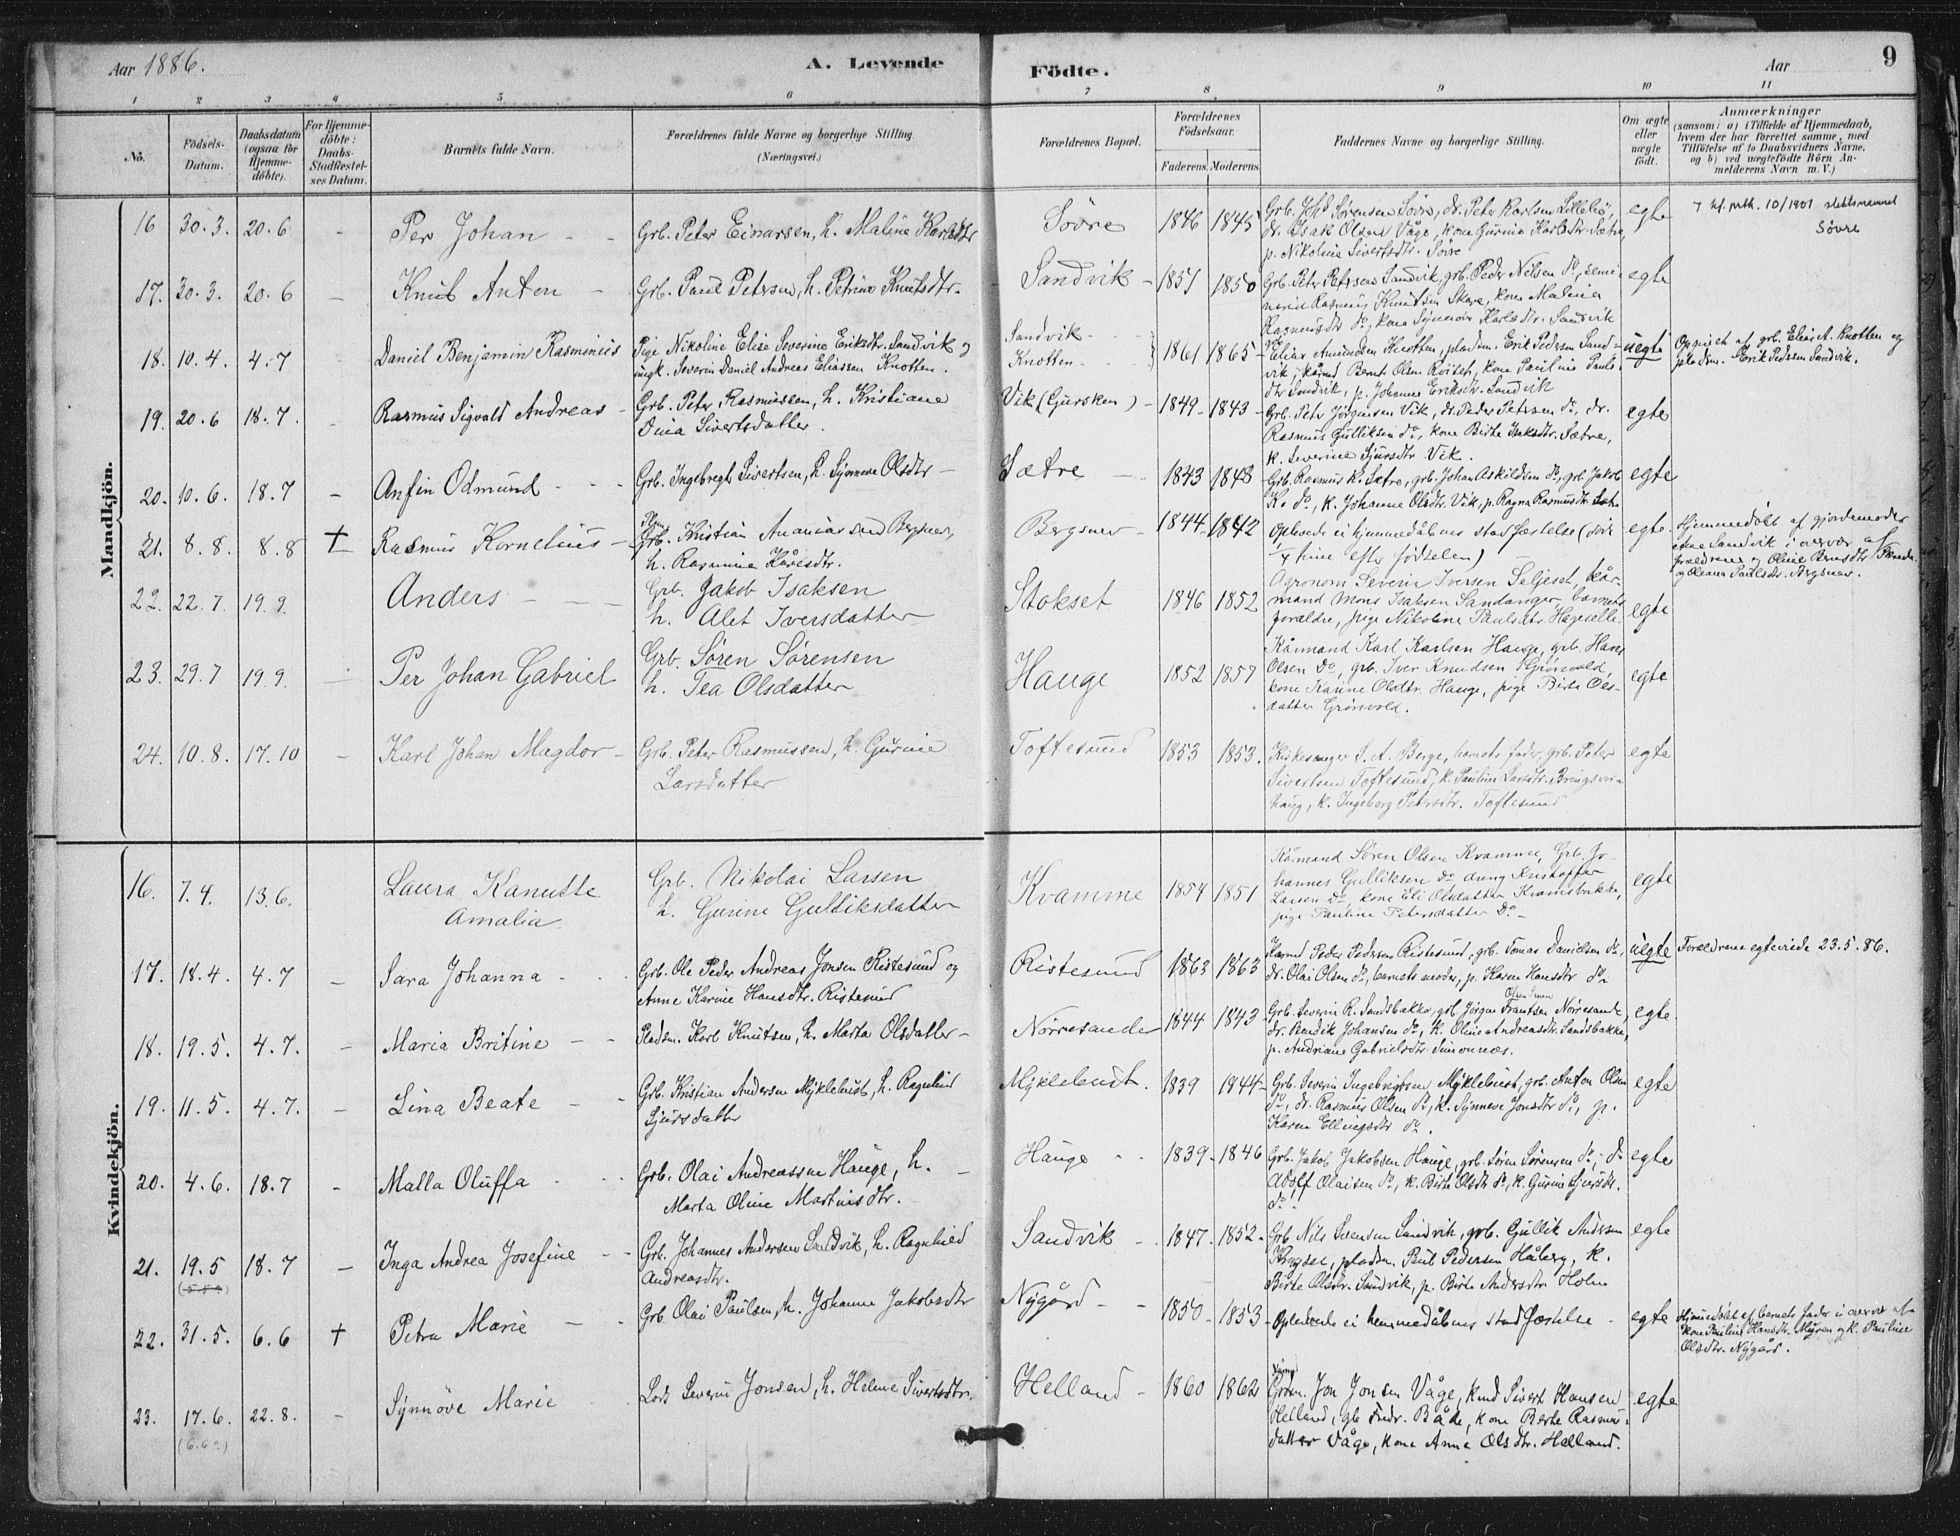 Aar 1886.
A. Levende
Födte.
Aar
9
1 2 3 4 5 6 7 8 9 10 11
No.
Födsels-
Datum.
Daabsdatum
(ogsaa for
Hjemme-
döbte).
For Hjemme-
döbte:
Daabs-
Stadfæstel-
ses Datum.
Barnets fulde Navn.
Forældrenes fulde Navne og borgerlige Stilling.
(Næringsvei.)
Forældrenes Bopæl.
Forældrenes
Födselsaar.
Faderens. Moderens.
Faddernes Navne og borgerlige Stilling.
Om ægte
eller
uægte
födt.
Anmærkninger
(saasom: a) i Tilfælde af Hjemmedaab,
hvem der har forrettet samme, med
Tilföielse af to Daabsvidners Navne,
og b) ved uægtefödte Börn An-
melderens Navn m. V.)
Mandkjön.
16 30.3. 20.6 - Per Johan - -
Grb. Peter Einarsen, h. Maline Karlsdtr
Søvre 1846 1845
Grb. Johs Sørensen Søvre, dr. Peter Karlsen Lillebø,
dr. Isak Olsen Våge, kone Gurine Karlsdtr. Sætre,
p. Nikoline Sivertsdtr. Søvre
egte
10/1901 slektsnavnet
Søvre
17. 30.3. 20.6 - Knut Anton -
Grb. Paul Petersen, h. Petrine Knutsdtr.
Sandvik - 1857 1850
Grb. Peter Petersen Sandvik, grb. Peder Nilsen do, semi-
narist Rasmus Knutsen Skare, kone Malena
Rasmusdtr do, kone Synnøve Karlsdtr. Sandvik
egte
18. 10.4. 4.7 - Daniel Benjamin Rasminius
Pige Nikoline Elise Severine Eriksdtr. Sandvik og
ungk. Severin Daniel Andreas Eliassen Knotten.
Sandvik
Knotten
1861 1865
Elias Amundsen Knotten, pladsm. Erik Pedersen Sand-
vik, kårmd Bernt Olsen Røiset, kone Pauline Pauls-
dtr Sandvik, p. Johanne Eriksdtr. Sandvik
uegte
Opgivet af grb. Elias A. Knotten og
pladsm. Erik Pedersen Sandvik.
19. 20.6 18.7. - Rasmus Sigvald Andreas -
Grb. Peter Rasmussen, h. Kristiane
Dina Sivertsdatter.
Vik (Gursken) - 1849 - 1843 -
Grb. Peter Jörgensen Vik, dr. Peder Petersen do, dr.
Rasmus Gulliksen do, kone Birte Isaksdtr. Sætre,
k. Severine Sjursdtr. Vik.
egte
20. 10.6. 18.7 - Anfin Odmund - - -
Grb. Ingebregt Sivertsen, h. Synneve Olsdtr -
Sætre - 1843 1848
Grb. Rasmus K. Sætre, grb. Johan Askildsen do, grb. Jakob
K. do, k. Johanne Olsdtr. Vik, p. Ragna Rasmusdtr. Sætre
egte
21. 8.8. 8.8 † Rasmus Kornelius -
Grb. Kristian Ananiassen Bergsnev,
h. Rasmine Kåresdtr.
Bergsnev - 1844 - 1842
Oplevede ei hjemmedåbens stadfæstelse (døde
time efter fødselen)
egte.
Hjemmedøbt af gjordemoder
Sandvik i overvær af
forældrene og Oline Berntsdtr
og Oleana Paulsdtr. Bergsnev.
22. 22.7. 19.9. - Anders - - -
Grb. Jakob Isaksen
h. Alet Iversdatter
Stokset 1846 1852
Agronom Severin Iversen Seljeset, kår-
mand Mons Isaksen Sandanger, barnets
forældre, pige Nikoline Paulsdtr. Hageselle.
egte
23. 29.7 19.9. - Per Johan Gabriel
Grb. Søren Sørensen
h. Tea Olsdatter
Hauge 1852 1857
Kårmand Karl Karlsen Hauge, grb. Hans
Olsen do, grb. Iver Knudsen Grönvold,
kone Karine Olsdtr. Hauge, pige Birte Ols-
datter Grönvold.
egte
24. 10.8. 17.10 - Karl Johan Magdor -
Grb. Peter Rasmussen, h. Gurine
Larsdatter
Toftesund 1853 1853.
Kirkesanger S. A. Berge, barnets fader, grb. Peter
Sivertsen Toftesund, k. Pauline Larsdtr. Bringsvor-
haug, k. Ingeborg Petersdtr. Toftesund
egte
Kvindekjön.
16. 7.4. 13.6. Laura Kanutte
Amalia
Grb. Nikolai Larsen
h. Gurine Gulliksdatter
Kvamme 1854 1851
Kårmand Søren Olsen Kvamme, Grb. Jo-
hannes Gulliksen do, dreng Kristoffer
Larsen do, kone Eli Olsdatter Kvamsbakke,
pige Pauline Petersdatter do -
egte
17. 18.4. 4.7 - Sara Johanna - -
Grb. Ole Peder Andreas Jonsen Ristesund og
Anne Karine Hansdtr. Ristesund
Ristesund 1863 1863
Kårmd Peder Pedersen Ristesund, grb. Tomas Danielsen do,
dr. Olai Olsen do, barnets moder, p. Karen Hansdtr do
uegte
Forældrene egteviede 23.5.86.
18. 19.5. 4.7. - Maria Britine - -
Pladsm. Karl Knutsen, h. Marta Olsdatter -
Nörresande 1844 1843
Grb. Severin R. Sandsbakke, grb. Jørgen Frantsen Nørresande,
dr. Bendik Johansen do, k. Oline Andreasdtr. Sandsbakke,
p. Andriane Gabrielsdtr. Simonnæs.
egte.
19. 11.5. 4.7. - Lina Beate - -
Grb. Kristian Andersen Myklebust, h. Ragnhild
Sjursdatter
Myklebust. 1839 1844 -
Grb. Severin Ingebrigtsen Myklebust, grb. Anton Olsen
do, dr. Rasmus Olsen do, k. Synneve Jonsdtr do, p.
Karen Ellingsdtr do.
egte
20. 4.6. 18.7 - Malla Oluffa - -
Grb. Olai Andreassen Hauge, h. -
Marta Oline Martinisdtr.
Hauge - 1839 - 1846
Grb. Jakob Jakobsen Hauge, grb. Søren Sørensen do, d.
Adolf Olaisen do, k. Birte Olsdtr do, k. Gurine Sjursdtr.
do -
egte
21. 19.5 18.7 - Inga Andrea Josefine - -
Grb. Johannes Andersen Sandvik, h. Ragnhild
Andreasdtr.
Sandvik - 1847 - 1852 -
Grb Nils Svendsen Sandvik, grb. Gullik Andersen
pladsm. Paul Pedersen Håberg, k.
Birte Olsdtr. Sandvik, p. Birte Andersdtr Holm
egte
22. 31.5. 6.6 † Petra Marie -
Grb Olai Paulsen, h. Johanne Jakobsdtr
Nygård - - 1850 - 1853 -
Oplevede ei hjemmedåbens stadfæstelse -
egte
Hjemmedøbt af barnets fader i overvær af
kone Pauline Hansdtr. Myren og k. Pauline
Olsdtr. Nygård.
23. 17.6. 22.8. - Synnöve Marie -
(6.6?)
Lods Severin Jonsen, h. Heline Sivertsdtr.
Helland - 1860 1862
Jon Jonsen Våge, kmd Sivert Hansen
Helland, gb. Fredr. Både, kone Berte Rasmus-
datter Våge, kone Anna Olsdtr. Helland.
egte